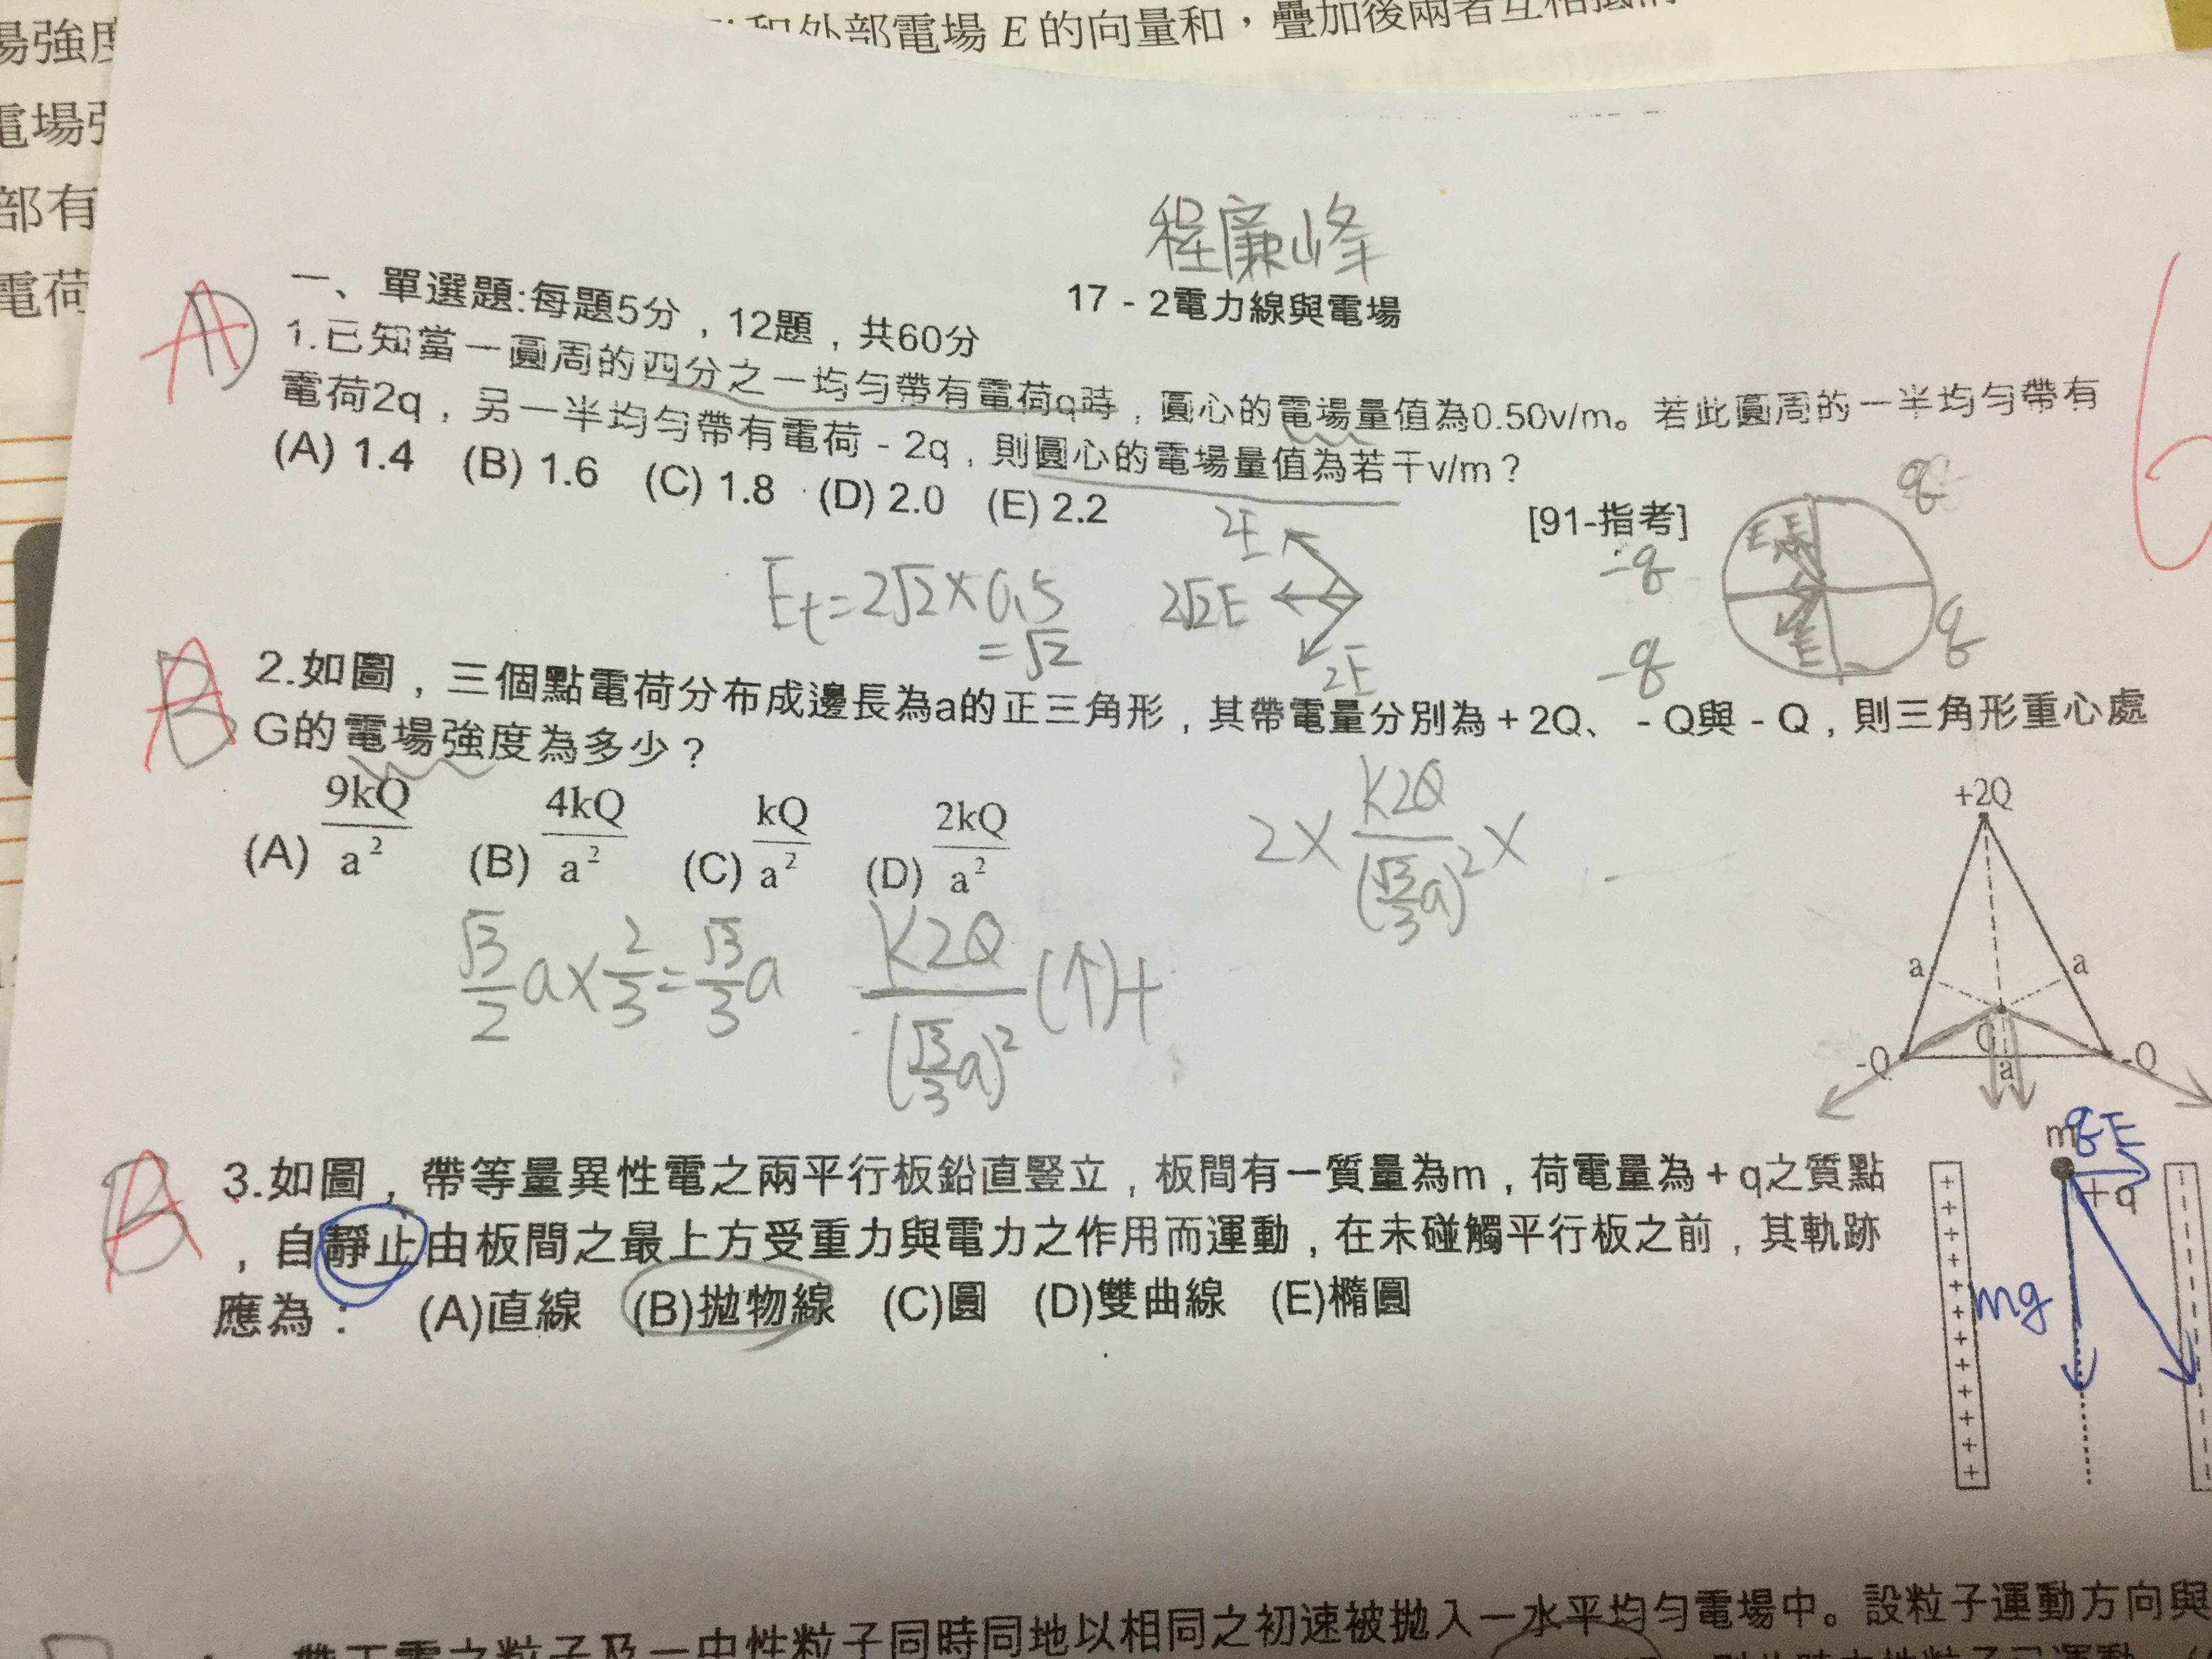 易強度
電場強
部有
電荷
和外部電場 E 的向量和，疊加後兩者互相抵消
程廉峰
17 - 2電力線與電場
一、單選題:每題5分，12題，共60分
A D
1.已知當一圓周的四分之一均勻帶有電荷q時，圓心的電場量值為0.50v/m。若此圓周的一半均勻帶有
電荷2q，另一半均勻帶有電荷 - 2q，則圓心的電場量值為若干v/m？
(A) 1.4 (B) 1.6 (C) 1.8 (D) 2.0 (E) 2.2
[91-指考]
Et=2√2×0.5
=√2
2E
2√2E
2E
q
-q
E E
E
q
-q
6
A B
2.如圖，三個點電荷分布成邊長為a的正三角形，其帶電量分別為+2Q、 - Q與 - Q，則三角形重心處
G的電場強度為多少？
(A) 9kQ/a² (B) 4kQ/a² (C) kQ/a² (D) 2kQ/a²
2× K2Q/(√3/3 a)² ×
√3/2 a×2/3=√3/3 a
K2Q/(√3/3 a)² (↑)+
+2Q
a a
G
-Q a -Q
A B
3.如圖，帶等量異性電之兩平行板鉛直豎立，板間有一質量為m，荷電量為+q之質點
，自靜止由板間之最上方受重力與電力之作用而運動，在未碰觸平行板之前，其軌跡
應為： (A)直線 (B)拋物線 (C)圓 (D)雙曲線 (E)橢圓
m qE
+q
mg
+ + + + + + + + + + + +
帶正電之粒子及一中性粒子同時同地以相同之初速被拋入一水平均勻電場中。設粒子運動方向與